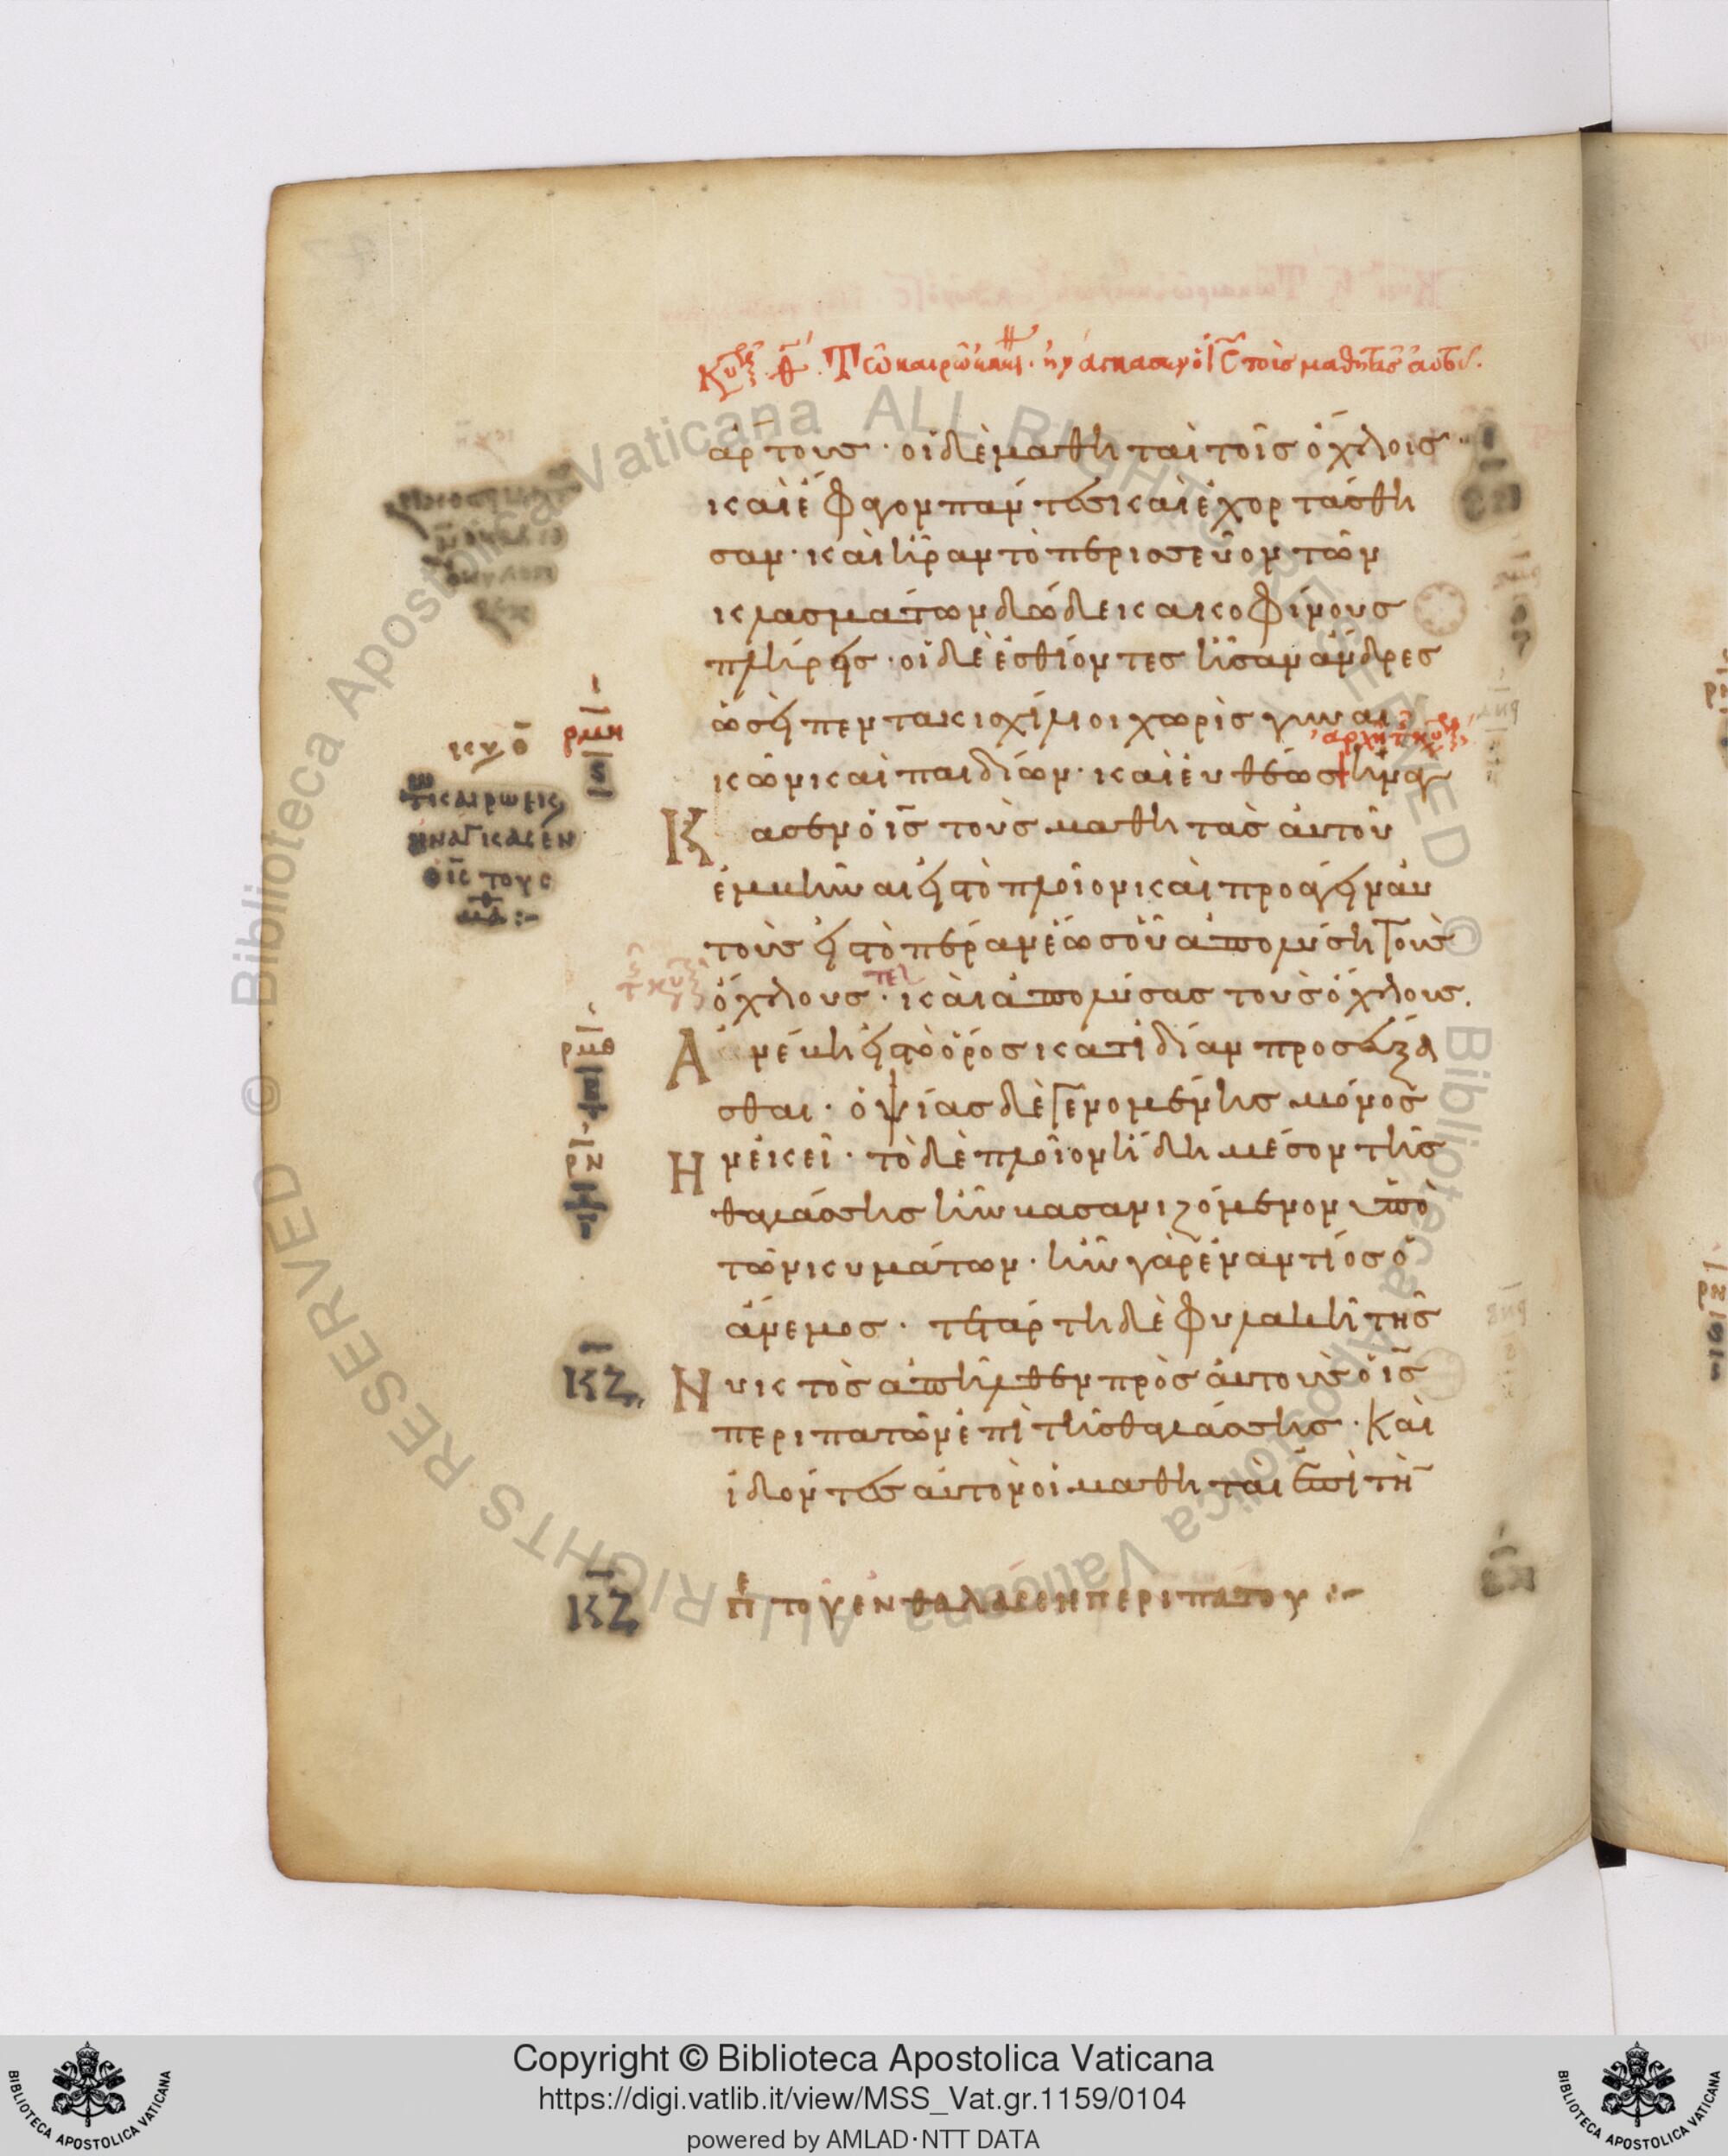 Τῶ καιρῶ ἐκείνω · ἠνάγκασεν ὁ ἰς τοὺς μαθητὰς αὐτοῦ.
ἄρτους · οἱ δὲ μαθηταὶ τοῖς ὄχλοις ·
καὶ ἔφαγον πάντες καὶ ἐχορτάσθη
σαν · καὶ ἦραν τὸ περισσεῦον τῶν
κλασμάτων δώδεκα κοφίνους
πλήρεις · οἱ δὲ ἐσθίοντες ἦσαν ἄνδρες
ὡσεὶ πεντακισχίλιοι χωρὶς γυναι
ἀρχὴ τῆς κυ
κῶν καὶ παιδίων · καὶ εὐθέως ἠνάγ
Κ ασεν ὁ ἰς τοὺς μαθητὰς αὐτοῦ
ἐμβῆναι εἰς τὸ πλοῖον καὶ προάγειν αὐ
τοὺς εἰς τὸ πέραν ἕως οὗ ἀπολύση τοὺς
ὄχλους · καὶ ἀπολύσας τοὺς ὄχλους.
Α νέβη εἰς τὸ ὄρος κατιδίαν προσεύξα
σθαι · ὀψίας δὲ γενομένης μόνος
Η ν ἐκεῖ · τὸ δὲ πλοῖον ἤδη μέσον τῆς
θαλάσσης ἦν βασανιζόμενον ὑπὸ
τῶν κυμάτων · ἦν γὰρ ἐναντίος ὁ
ἄνεμος · τετάρτη δὲ φυλακῆ τῆς
Ν υκτὸς ἀπῆλθεν πρὸς αὐτοὺς ὁ ἰς
περιπατῶν ἐπὶ τῆς θαλάσσης · Καὶ
ἰδόντες αὐτὸν οἱ μαθηταὶ ἐπὶ τὴ
ΚΖ πε τοῦ ἐν θαλάσση περιπάτου :-
κυ ο
τω καιρω εκει
ηναγκασεν
ο ις τους
μα :-
ρμη
ς
ρμθ
ρν
ΚΖ
Copyright © Biblioteca Apostolica Vaticana
https://digi.vatlib.it/view/MSS_Vat.gr.1159/0104
powered by AMLAD·NTT DATA
BIBLIOTECA APOSTOLICA VATICANA
BIBLIOTECA APOSTOLICA VATICANA
© Biblioteca Apostolica Vaticana ALL RIGHTS RESERVED
© Biblioteca Apostolica Vaticana ALL RIGHTS RESERVED